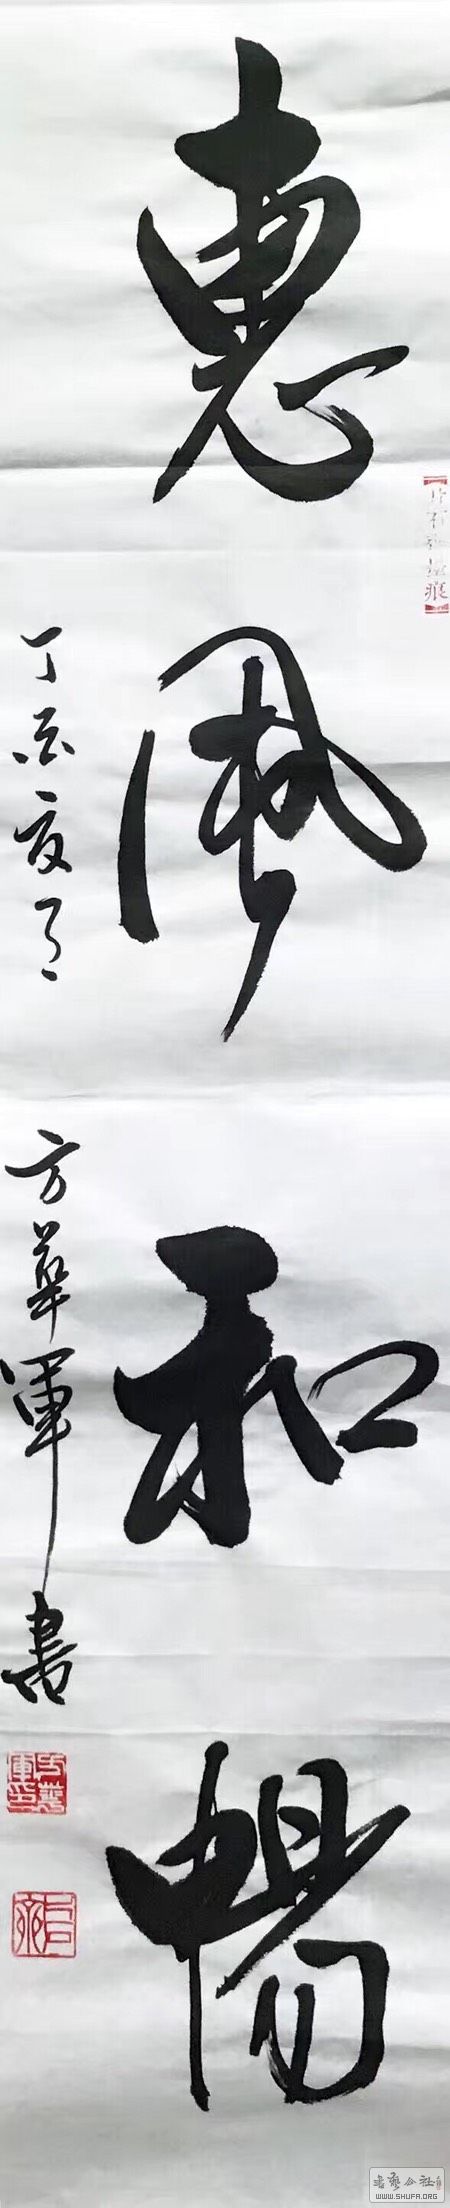 惠風和暢
丁酉夏月
方華軍書
書藝公社
WWW.SHUFA.ORG